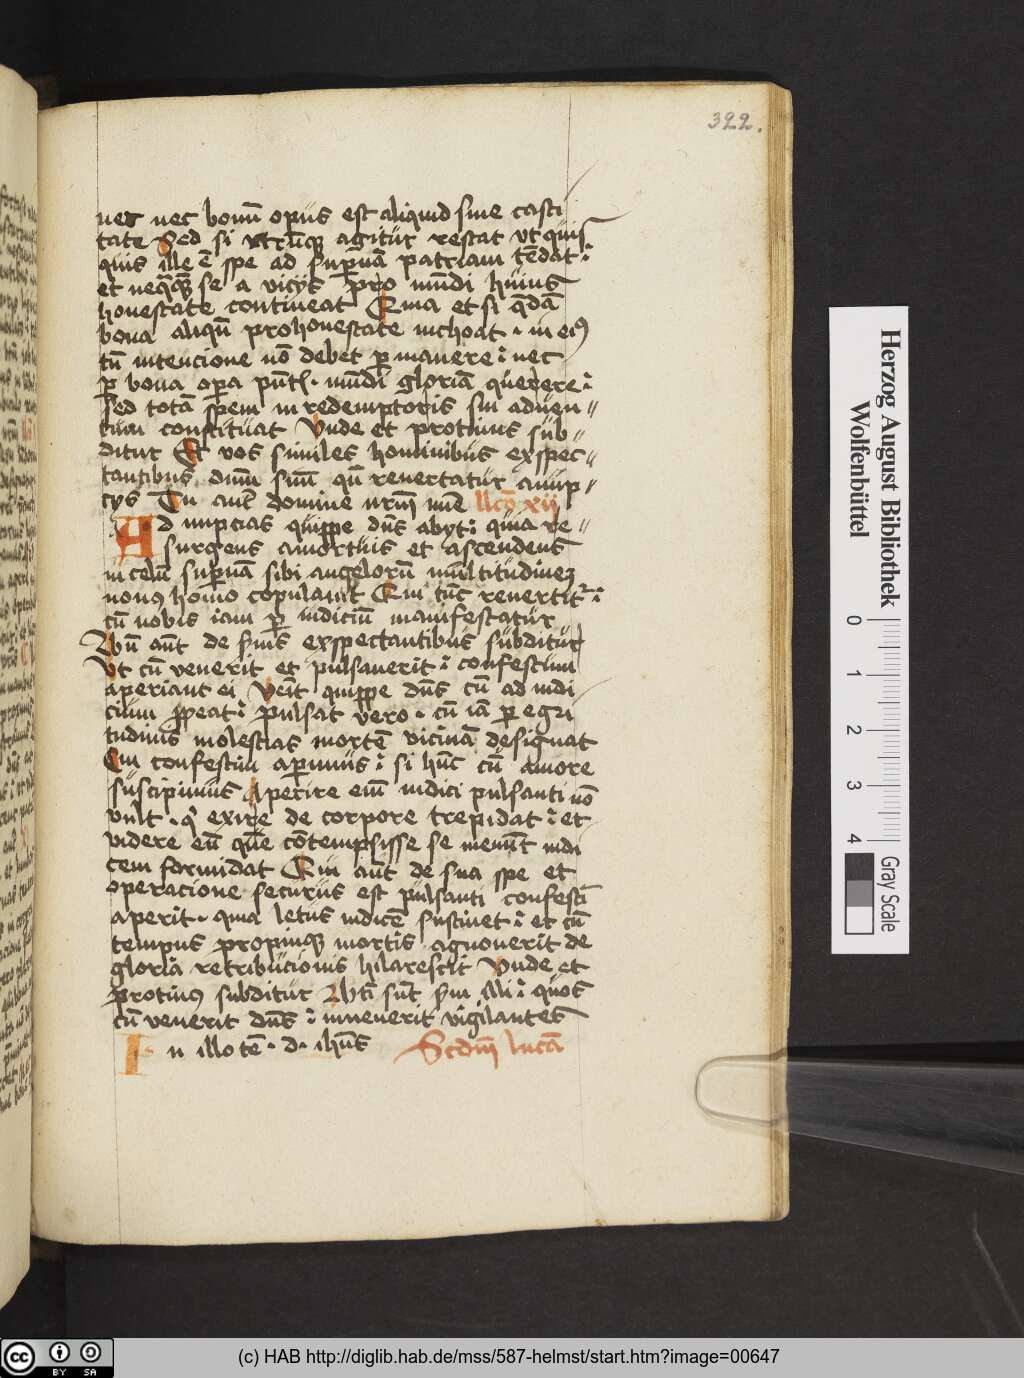 322.
nec nec bonū opus est aliquid sine casti
tate Sed si utrūqꝫ agitur restat ut quis
quis ille ē spe ad sup̄nā patriam tēdat
et neq̄qꝫ se a vicijs pro mūdi huius
honestate contineat Quia et si q̄dā
bona aliqn̄ pro honestate inchoat · in eiꝰ
tn̄ intencione nō debet ꝑmanere nec
ꝑ bona opa pn̄t · mūdi gloriā querere
sed totā spem in redemptoris sui aduen〃
tum constituat Unde et protinus sub〃
ditur Et vos similes hominibus exspec〃
tantibus dn̄m suū qn̄ reuertatur a nup〃
cijs Tu aut domine nr̄m mīe llcō xii
Ad nupcias quippe dn̄s abijt quia re〃
surgens a mortuis et ascendens
in celū sup̄nā sibi angelorū multitudineꝫ
nouꝰ homo copulauit Qui tūc reuertit᷑
cū nobis iam ꝑ iudiciū manifestatur
Bn̄ aūt de s̄uis exspectantibus subditur
Ut cū venerit et pulsauerit confestim
aperiant ei Venit quippe dn̄s cū ad iudi
cium ꝓpeat pulsat vero · cū iā ꝑ egri
tudinis molestias mortē vicinā designat
Cui confestim aꝑimus si hūc cū amore
suscipimus Aperire eni iudici pulsanti nō
vult · q̇ exire de corpore trepidat et
videre eū quē cōtempsisse se meminit iudi
cem formidat Qui aūt de sua spe et
operacione securus est pulsanti confestī
aperit · quia letus iudicē sustinet et cū
tempus propinquꝫ mortis agnouerit de
gloria retribucionis hilarescit Unde et
protinꝰ subditur Bt̄i sūt s̄ui illi quos
cū venerit dn̄s inuenerit vigilantes
In illo tē · d · ihūs Scdm̄ lucā
Herzog August Bibliothek
Wolfenbüttel
0 1 2 3 4
Gray Scale
cc BY SA
(c) HAB http://diglib.hab.de/mss/587-helmst/start.htm?image=00647